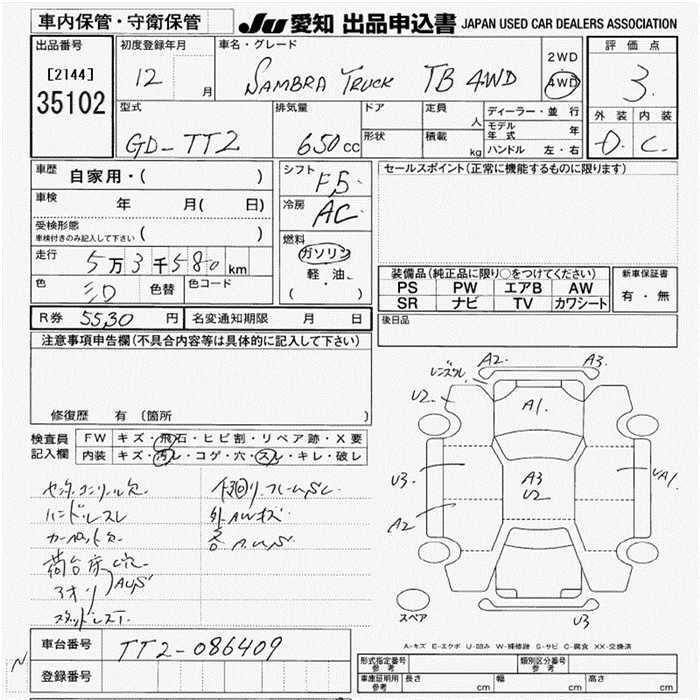 車内保管・守衛保管
JU 愛知 出品申込書 JAPAN USED CAR DEALERS ASSOCIATION
出品番号
[2144]
35102
初度登録年月
12 月
車名・グレード
SAMBRA TRUCK TB 4WD
2WD
4WD
評価点
3.
外装 内装
D. C.
型式
GD-TT2
排気量
650 cc
ドア
形状
定員
人
積載
kg
ディーラー・並行
モデル年式 年
ハンドル 左・右
車歴
自家用・( )
車検
年 月( 日)
受検形態
車検付きのみ記入して下さい ( )
走行
5万3千580km
色
色替
色コード
シフト
F5.
冷房
AC
燃料
ガソリン
軽・油
( )
セールスポイント(正常に機能するものに限ります)
装備品(純正品に限り○をつけてください)
PS PW エアB AW
SR ナビ TV カワシート
新車保証書
有・無
後日品
R券 5530 円
名変通知期限 月 日
注意事項申告欄(不具合内容等は具体的に記入して下さい)
修復歴 有 (箇所 )
検査員記入欄
FW キズ・飛石・ヒビ割・リペア跡・X要
内装 キズ・汚レ・コゲ・穴・スレ・キレ・破レ
ハンドルスレ
荷台床
アオリ
A2. A3.
U2.
A1.
U3
A3
U2
A2
UA1.
U3
スペア
A-キズ E-エクボ U-凹み W-補修跡 S-サビ C-腐食 XX-交換済
車台番号
TT2-086409
N
登録番号
形式指定番号 参考
類別区分番号 参考
車庫証明用 参考
長さ cm
幅 cm
高さ cm